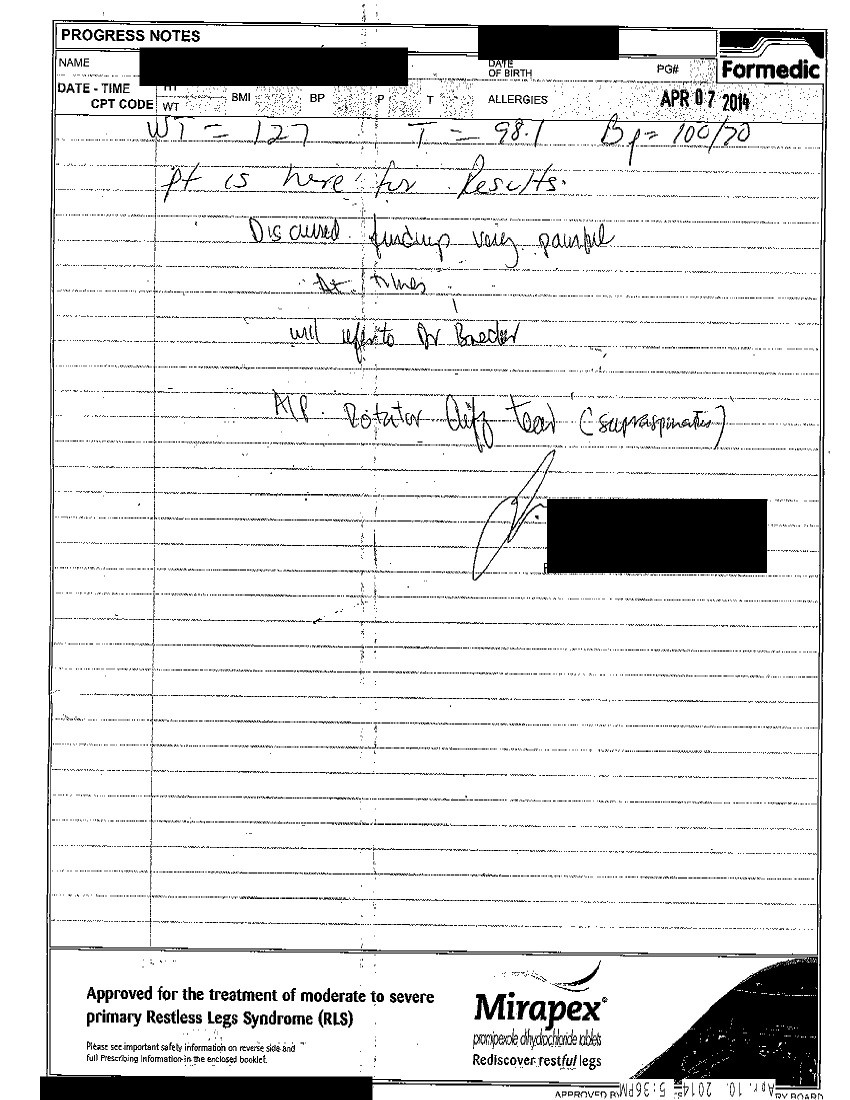 PROGRESS NOTES
NAME
DATE OF BIRTH
PG#
Formedic
DATE - TIME
CPT CODE
HT
WT
BMI
BP
P
T
ALLERGIES
APR 07 2014
WT = 127 T = 98.1 Bp= 100/70
pt is here for Results.
Discussed very painful
At times
will refer to Dr
A/P. Rotator Cuff tear (supraspinatus)
Approved for the treatment of moderate to severe
primary Restless Legs Syndrome (RLS)
Please see important safety information on reverse side and
full Prescribing Information in the enclosed booklet.
Mirapex®
pramipexole dihydrochloride tablets
Rediscover restful legs
APPROVED BY
Apr. 10. 2014 5:36PM
RY BOARD